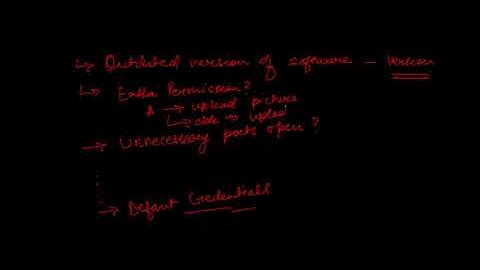 ↳ Outdated version of software — Version
↳ Extra Permission?
→ upload picture
↳ able to upload
→ Unnecessary ports open?
→ Defaut Credentials